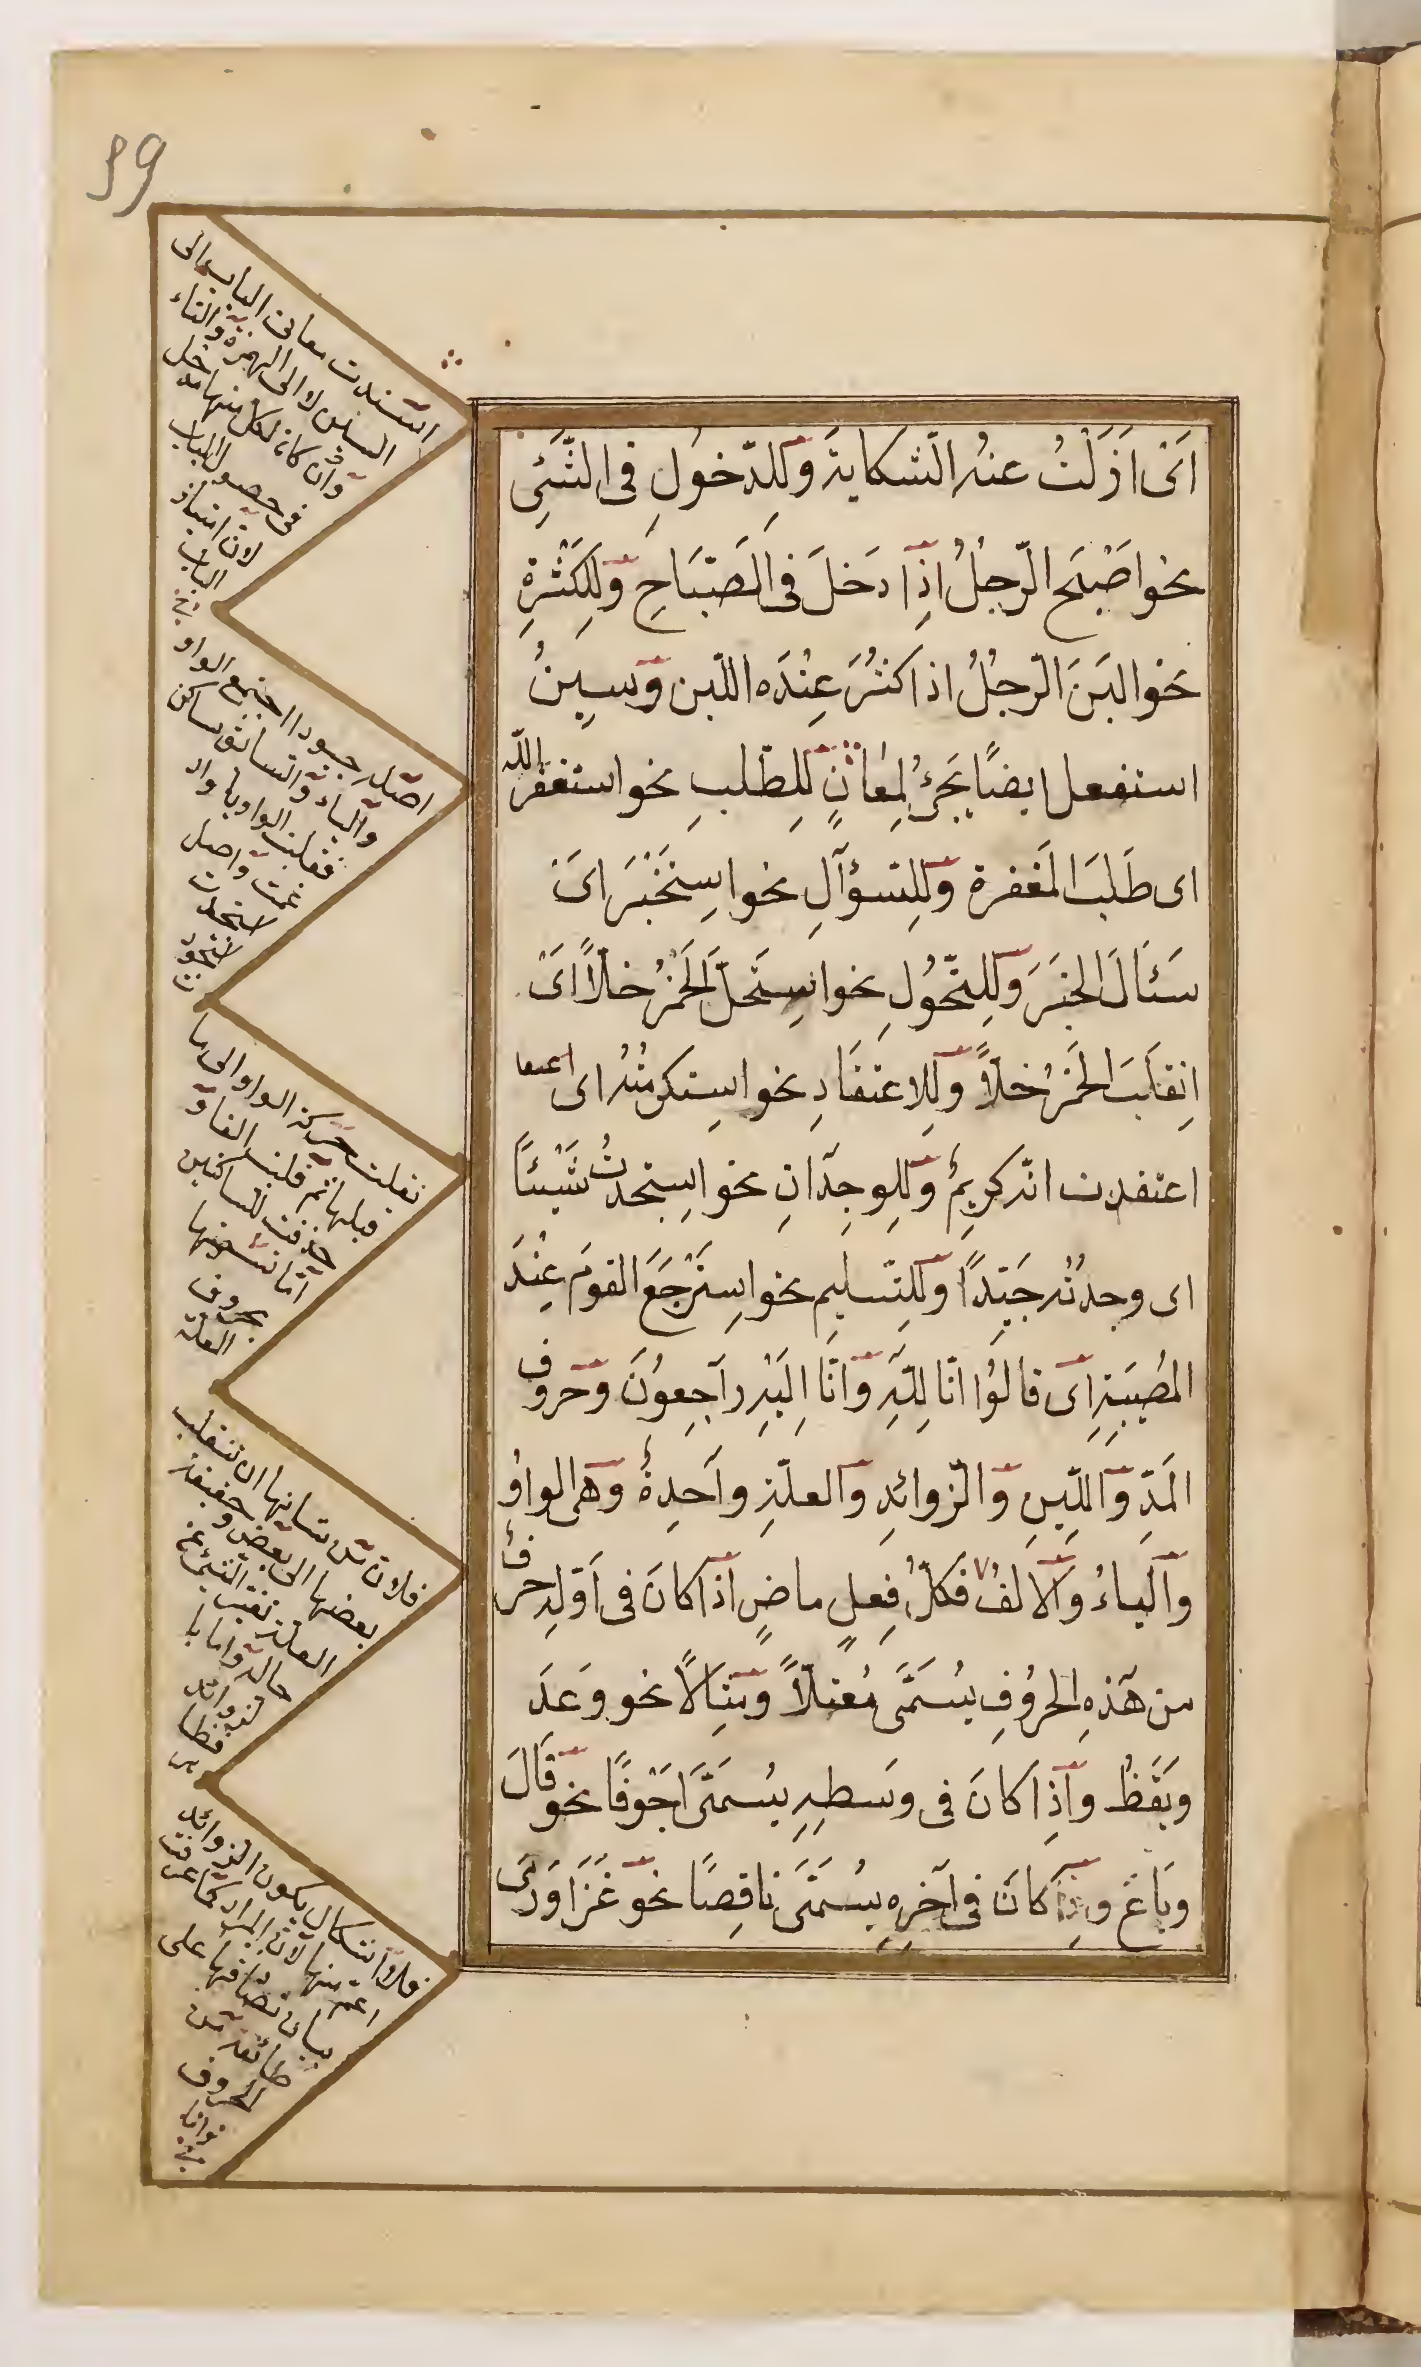 39
اَىْ اَزَلْتُ عنهُ الشّكايةَ وَلِلدّخولِ فى الشَّئِ
نحو اَصْبَحَ الرّجلُ اذِا دَخلَ فى الصَّبَاحِ وَلِلكَثْرةِ
نحو البَنَ الرّجلُ اذا كثُرَ عِنْدَه اللّبن وَسينُ
استفعل ايضًا يَجئُ لِمَعانٍ لِلطّلبِ نحو استغفر اللّه
اى طَلَبَ المَغفرة وَلِلسؤآلِ نحو استِخْبَرَ اىْ
سَئَالَ الخبَرَ وَلِلتّحوّلِ نحو استِحَلَّ الخَمْرُ خلّاً اىْ
اِنقلَبَ الخَمْرُ خلّاً وَلِلاعتقَادِ نحو استِكرمْتُهُ اى
اعتقدت انّه كريمٌ وَلِلوجِدَانِ نحو استِجدتُ شَيْئًا
اى وجدتُه جَيّدًا وَلِلتّسليمِ نحو استِرْجَعَ القومُ عِنْدَ
المُصيبَةِ اىْ قالوُا انَّا لِلّهِ وَانَّا اِلَيْهِ رآجِعوُنَ وَحروفُ
المَدِّ وَاللّينِ وَالزّوائدِ وَالعلّةِ وآحدةٌ وَهى الواوُ
وَاليآءُ وَالالفُ فكلُّ فِعلٍ ماضٍ اذا كانَ فى اَوّلهِ حرفٌ
من هَذهِ الحروُفِ يسُمَّى مُعتلّاً وَمثِالًا نحو وَعَدَ
ويَقَظُ وَاذِا كانَ فى وسَطهِ يسُمَّى اَجْوفًا نحو قَالَ
وبَاعَ وإِذَا كانَ فى آخرهِ يسُمَّى ناقِصًا نحوَ غَزَا وَرَمَى
استندت معانى الباب الى
السين لا الى الهمزة والتاء
وان كان لكل منها مدخل
فى حصول الباب
لان امتياز
الباب
اصل جيود اجتمع الواو
والياء والسابق ساكن
فقلبت الواو ياء
ثمت واصل
استجدت
استجودت
نقلت حركة الواو الى ما
قبلها ثم قلبت الفا و
حذفت للساكنين
امّا تسميتها
بحروف
العلة
فلان من شانها ان تنقلب
بعضها الى بعض وحقيقة
العلة تغيير الشئ عن
حاله واما بالـ
زوائد
فظاهر
فلا اشكال بكون الزوائد
اعم منها لان المراد كما عرفت
بيان تصادقها على
طائفة من
الحروف